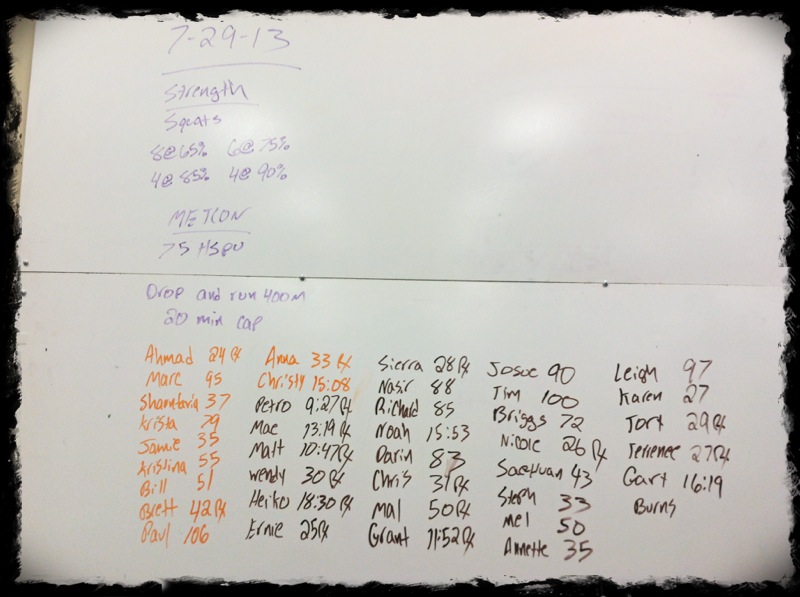 7-29-13
Strength
Squats
8@65% 6@75%
4@85% 4@90%
METCON
75 HSPU
Drop and run 400m
20 min cap
Ahmad 24 Rx
Marc 95
37
Krista 79
Jamie 35
Kristina 55
Bill 51
Brett 42 Rx
Paul 106
Anna 33 Rx
Christy 15:08
Petro 9:27 Rx
Mac 13:19 Rx
Matt 10:47 Rx
Wendy 30 Rx
Heiko 18:30 Rx
Ernie 25 Rx
Sierra 28 Rx
Nasir 88
Richard 85
Noah 15:53
Darin 83
Chris 31 Rx
Mal 50 Rx
Grant 11:52 Rx
Josue 90
Tim 100
Briggs 72
Nicole 26 Rx
43
Steph 33
Mel 50
Annette 35
Leigh 97
Karen 27
Tory 29 Rx
Terrence 27 Rx
Gary 16:19
Burns